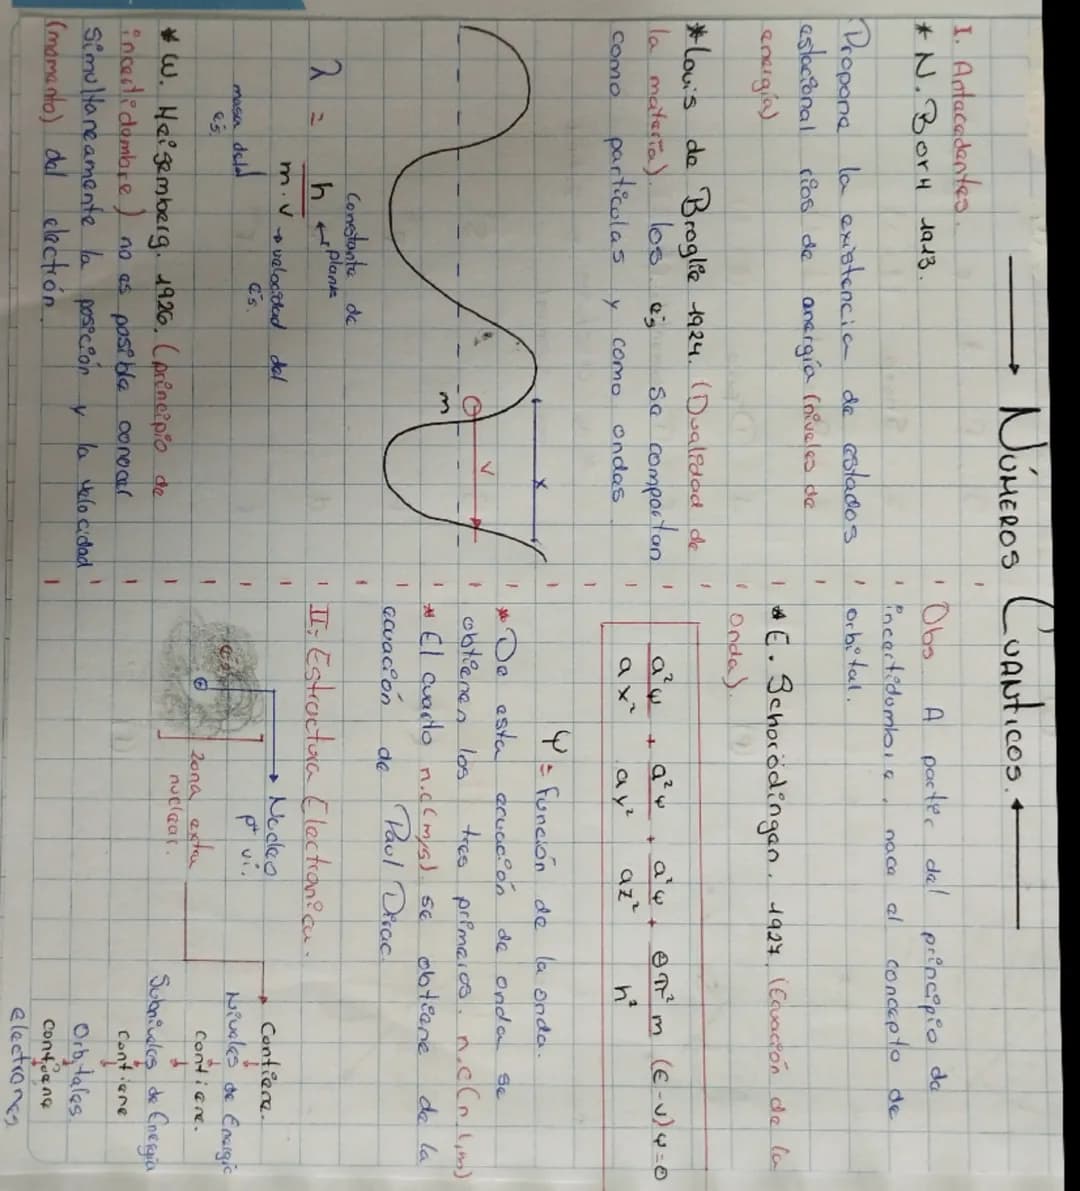 → NÚMEROS CUANTICOS. ←
I. Antecedentes.
* N. BorH 1913.
Propone la existencia de estados
estacionarios de energía (niveles de
energía)
* Louis de Broglie 1924. (Dualidad de
la materia). los e⁻s se comportan
como partículas y como ondas
x
v
m
λ = h / m.v
Constante de
plank
velocidad del
e⁻s.
masa del
e⁻s
* W. Heisemberg. 1926. (principio de
incertidumbre) no es posible conocer
simultaneamente la posición y la velocidad
(momento) del electrón.
Obs A partir del principio de
incertidumbre, nace el concepto de
orbital.
* E. Schorödingan. 1927. (Ecuación de la
onda).
a²ψ/ax² + a²ψ/ay² + a²ψ/az² + 8π²m/h² (E-v)ψ=0
ψ= función de la onda.
* De esta ecuación de onda se
obtienen los tres primeros. n.c(n,l,m)
* El cuarto n.c(ms) se obtiene de la
ecuación de Paul Dirac.
II. Estructura Electronica.
Nucleo
e⁻s
zona extra
nuclear.
Contiene.
Niveles de Energía
contiene.
Subniveles de Energía
contiene
Orbitales
contiene
electrones